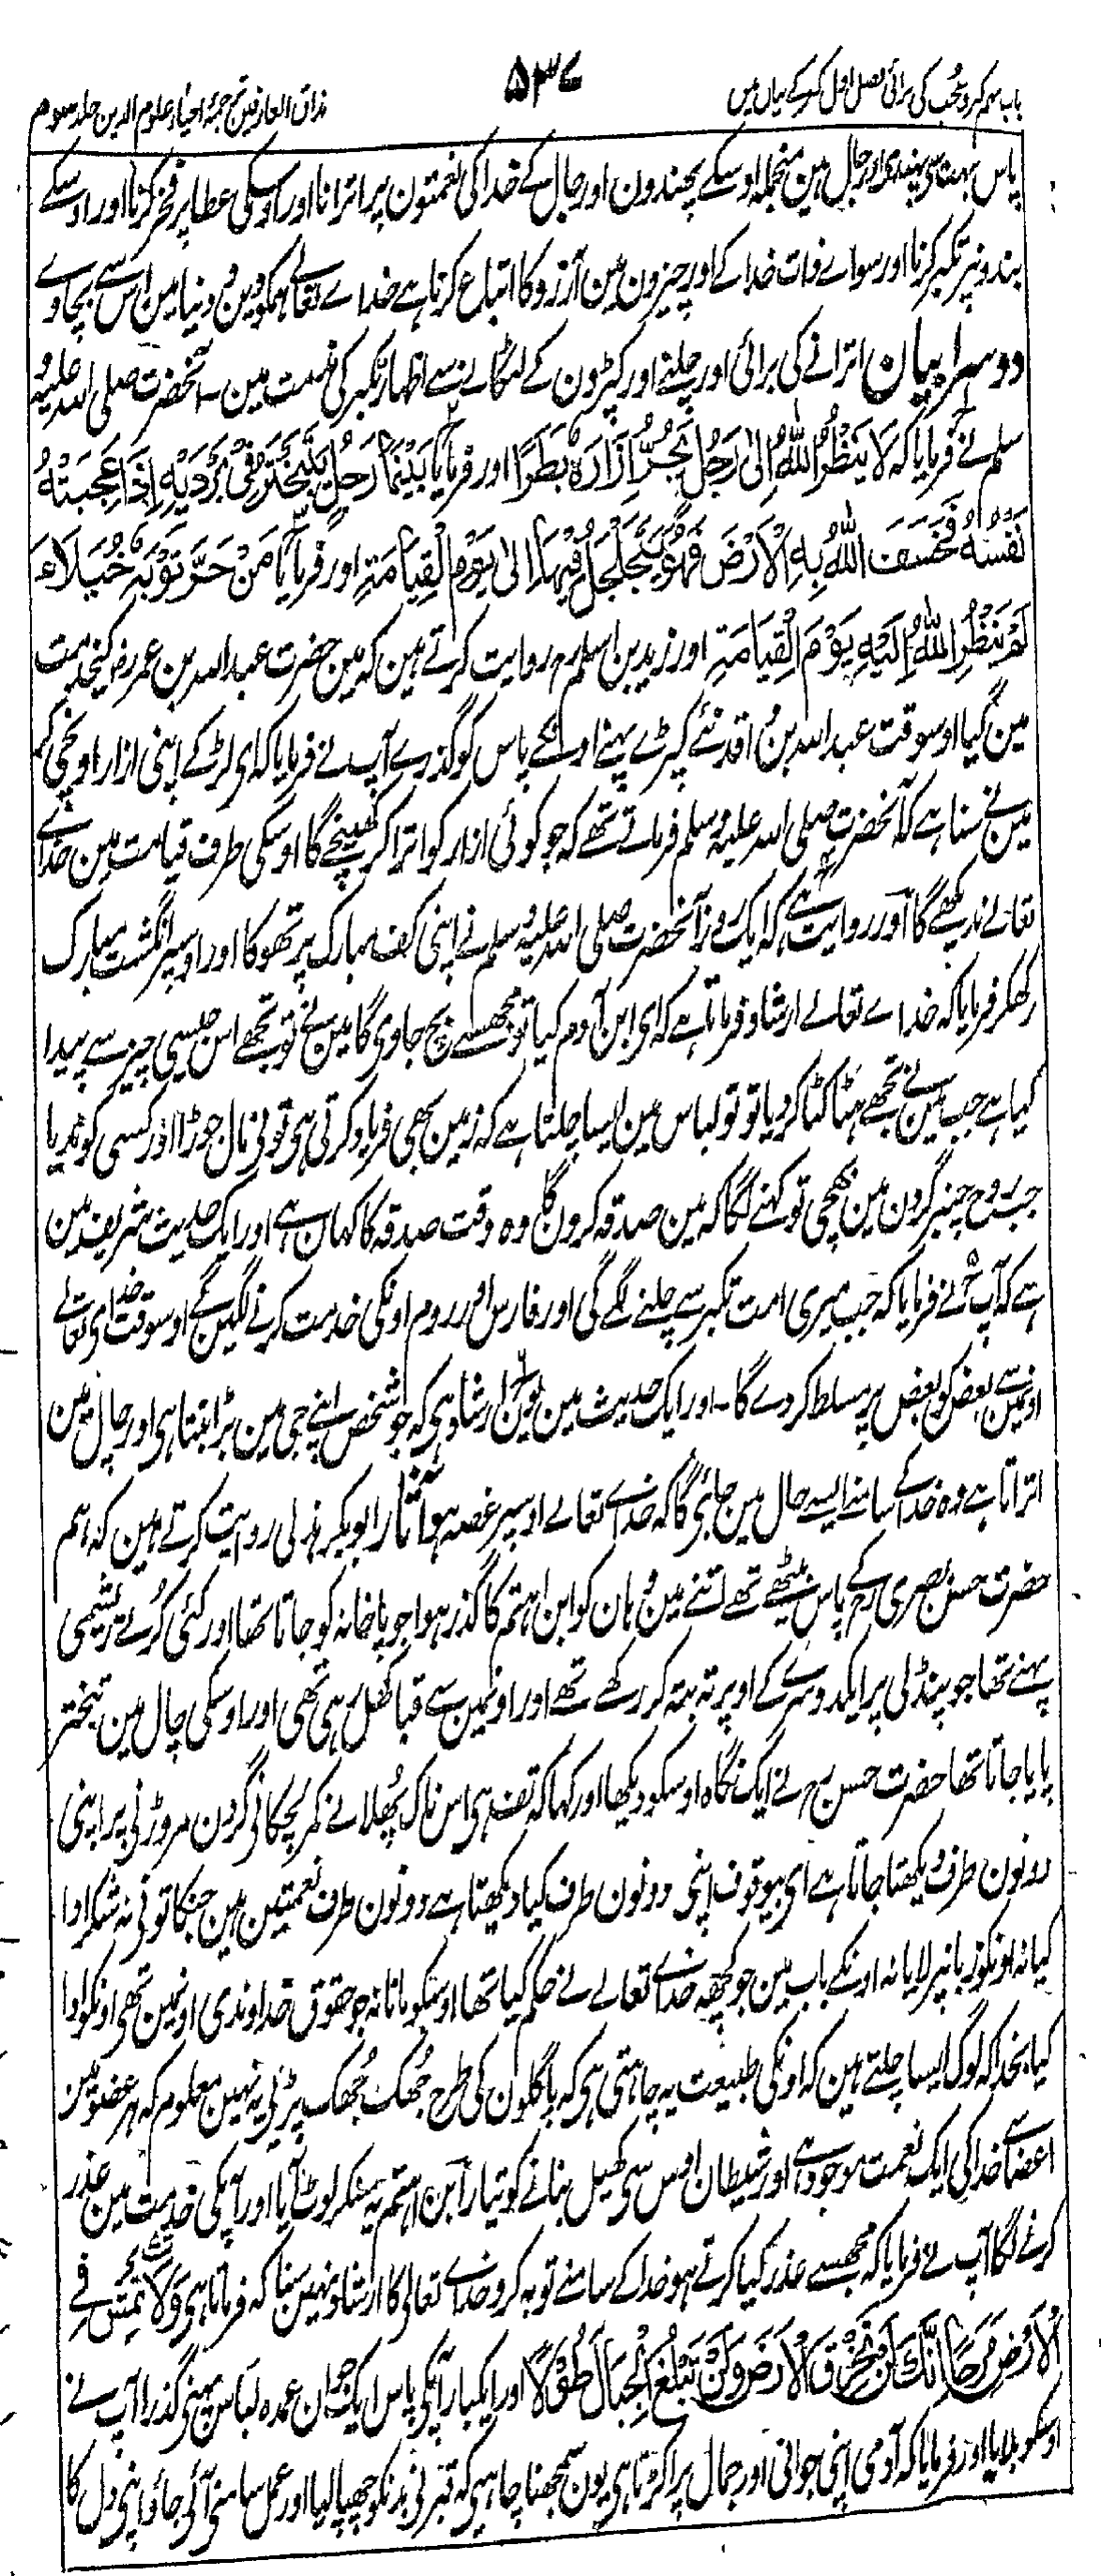 باب نہم کبر و عجب کی برائی فصل اول کبر کے بیان میں
۵۳۶
مذاق العارفین ترجمۂ احیاء علوم الدین جلد سوم
پاس بہت سے پھندے اور جال ہین منجملہ اوسکے پھندون اور جال کے خدا کی نعمتون پر اترانا اور اوسکی عطا پر فخر کرنا اور اوسکے
بندونپر تکبر کرنا اور سواے ذات خدا کے اور چیزون مین آرزو کا اتباع کرنا ہے خداے تعالے ہمکو دین و دنیا مین اس سے بچاوے
دوسرا بیان اترانے کی برائی اور چلنے اور کپڑون کے لٹکانے سے اظہار تکبر کی مذمت مین۔ آنحضرت صلی اللہ علیہ و
سلم نے فرمایا کہ لَا يَنْظُرُ اللهُ اِلٰى رَجُلٍ يَجُرُّ اِزَارَهٗ بَطَرًا اور فرمایا بَيْنَمَا رَجُلٌ يَتَبَخْتَرُ فِيْ بُرْدَيْهِ اِذْ اَعْجَبَتْهُ
نَفْسُهٗ فَخَسَفَ اللهُ بِهِ الْاَرْضَ فَهُوَ يَتَجَلْجَلُ فِيْهَا اِلٰى يَوْمِ الْقِيَامَةِ اور فرمایا مَنْ جَرَّ ثَوْبَهٗ خُيَلَاءَ
لَمْ يَنْظُرِ اللهُ اِلَيْهِ يَوْمَ الْقِيَامَةِ اور زید بن اسلم رہ روایت کرتے ہین کہ مین حضرت عبداللہ بن عمر رض کیخدمت
مین گیا اوسوقت عبداللہ بن واقد نئے کپڑے پہنے اونکے پاس کو گذرے آپ نے فرمایا کہ ای لڑکے اپنی ازار اونچی کر
مین نے سنا ہے کہ آنحضرت صلی اللہ علیہ وسلم فرماتے تھے کہ جو کوئی ازار کو اتراکر کھینچے گا اوسکی طرف قیامت مین خداے
تعالے ندیکھے گا اور روایت ہے کہ ایک روز آنحضرت صلی اللہ علیہ وسلم نے اپنی کف مبارک پر تھوکا اور اوسپر انگشت مبارک
رکھکر فرمایا کہ خداے تعالے ارشاد فرماتا ہے کہ ای ابن آدم کیا تو مجھسے بچ جاوی گا مین نے تو تجھے اس جیسی چیز سے پیدا
کیا ہے جب مین نے تجھے ہٹا کٹا کردیا تو تو لباس مین ایسا چلتا ہے کہ زمین بھی فریاد کرتی ہی تو نی مال جوڑا اور کسی کو ندیا
جب روح چنبر گردن مین پہنچی تو کہنے لگا کہ مین صدقہ کرون گا وہ وقت صدقہ کا کہان ہے اور ایک حدیث شریف مین
ہے کہ آپ نے فرمایا کہ جب میری امت تکبر سے چلنے لگے گی اور فارس اور روم اونکی خدمت کرنے لگین گے اوسوقت خدای تعالے
اونمین سے بعض کو بعض پر مسلط کردے گا۔ اور ایک حدیث مین یون ارشاد ہی کہ جو شخص اپنے جی مین بڑا بنتا ہی اور چال مین
اتراتا ہے وہ خدا کے سامنے ایسے حال مین جائیگا کہ خداے تعالے اوسپر غصہ ہو آثار ابوبکر ہذلی روایت کرتے ہین کہ ہم
حضرت حسن بصری رح کے پاس بیٹھے تھے اتنے مین وہان کو ابن اہتم کا گذر ہوا جو پاخانہ کو جاتا تھا اور کئی کرتے ریشمی
پہنے تھا جو پنڈلی پر ایکدوسرے کے اوپر تہ بتہ کر رکھے تھے اور اونمین سے قبا کھل رہی تھی اور اوسکی چال مین تبختر
پایا جاتا تھا حضرت حسن رح نے ایک نگاہ اوسکو دیکھا اور کہا کہ تف ہی اس ناک پھلانے کمر لچکانی گردن مروڑنی پر اپنی
دونون طرف دیکھتا جاتا ہے ای بیوقوف اپنی دونون طرف کیا دیکھتا ہے دونون طرف نعمتین ہین جنکا تونی نہ شکر ادا
کیا نہ اونکو زبانپر لایا نہ اونکے باب مین جو کچھ خداے تعالے نے حکم کیا تھا اوسکو مانا نہ جو حقوق خداوندی اونمین تھی اونکو ادا
کیا بخدا کہ لوگ ایسا چلتے ہین کہ اونکی طبیعت یہ چاہتی ہی کہ پاگلون کی طرح جھک جھک پڑی یہ نہین معلوم کہ ہر عضو مین
اعضا سے خدا کی ایک نعمت موجود ہے اور شیطان اوس سی کھیل بنانے کو تیار ابن اہتم یہ سنکر لوٹ آیا اور آپکی خدمت مین عذر
کرنے لگا آپ نے فرمایا کہ مجھسے عذر کیا کرتے ہو خدا کے سامنے توبہ کرو خداے تعالی کا ارشاد نہین سنا کہ فرماتا ہی وَلَا تَمْشِ فِي
الْاَرْضِ مَرَحًا اِنَّكَ لَنْ تَخْرِقَ الْاَرْضَ وَلَنْ تَبْلُغَ الْجِبَالَ طُوْلًا اور ایکبار آپکی پاس ایک جوان عمدہ لباس پہنی گذرا آپ نے
اوسکو بلایا اور فرمایا کہ آدمی اپنی جوانی اور جمال پر اکڑتا ہی یون سمجھنا چاہیی کہ قبر نی بدنکو چھپا لیا اور عمل سامنی آئی جاؤ اپنی دل کا